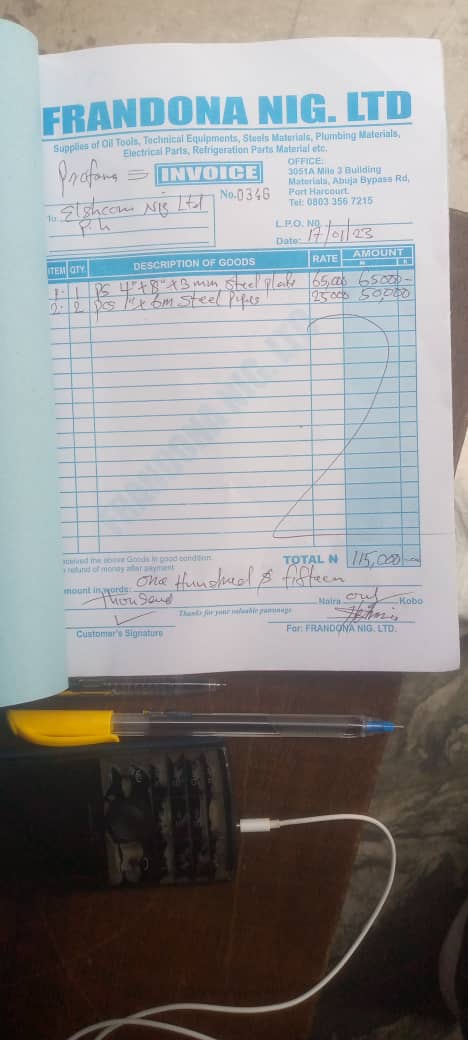 FRANDONA NIG. LTD
Supplies of Oil Tools, Technical Equipments, Steels Materials, Plumbing Materials,
Electrical Parts, Refrigeration Parts Material etc.
Profoma = INVOICE
No.0346
OFFICE:
3051A Mile 3 Building
Materials, Abuja Bypass Rd,
Port Harcourt.
Tel: 0803 356 7215
To: Elshcom NIG Ltd
P.h
L.P.O. No
Date: 17/01/23
ITEM QTY. DESCRIPTION OF GOODS RATE AMOUNT
N K
1. 1 ps 4" x 8" x 3mm steel plate 65,000 65000-
2. 2 pcs 1" x 6m steel pipes 25000 50,000
FRANDONA NIG. LTD
received the above Goods in good condition.
refund of money after payment
TOTAL N 115,000
mount in words: One Hundred & fifteen
thousand Naira only Kobo
Thanks for your valuable patronage
Customer's Signature
For: FRANDONA NIG. LTD.